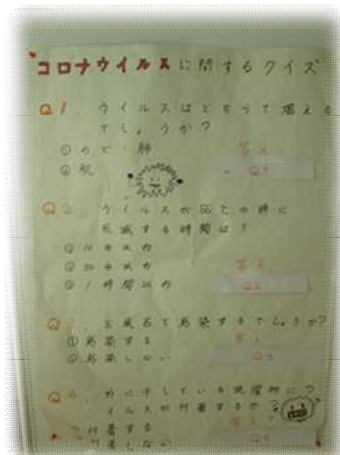 コロナウイルスに関するクイズ
Q1. ウイルスはどちらで増える
でしょうか?
①のど・肺
②肌
答え
Q1
Q2. ウイルスが
死滅する時間は?
①10分以内
②30分以内
③1時間以内
答え
Q2
感染するでしょうか?
①感染する
②感染しない
答え
Q3
Q4. 外に干している洗濯物にウ
イルスが付着するか?
付着する
付着しない
Q4